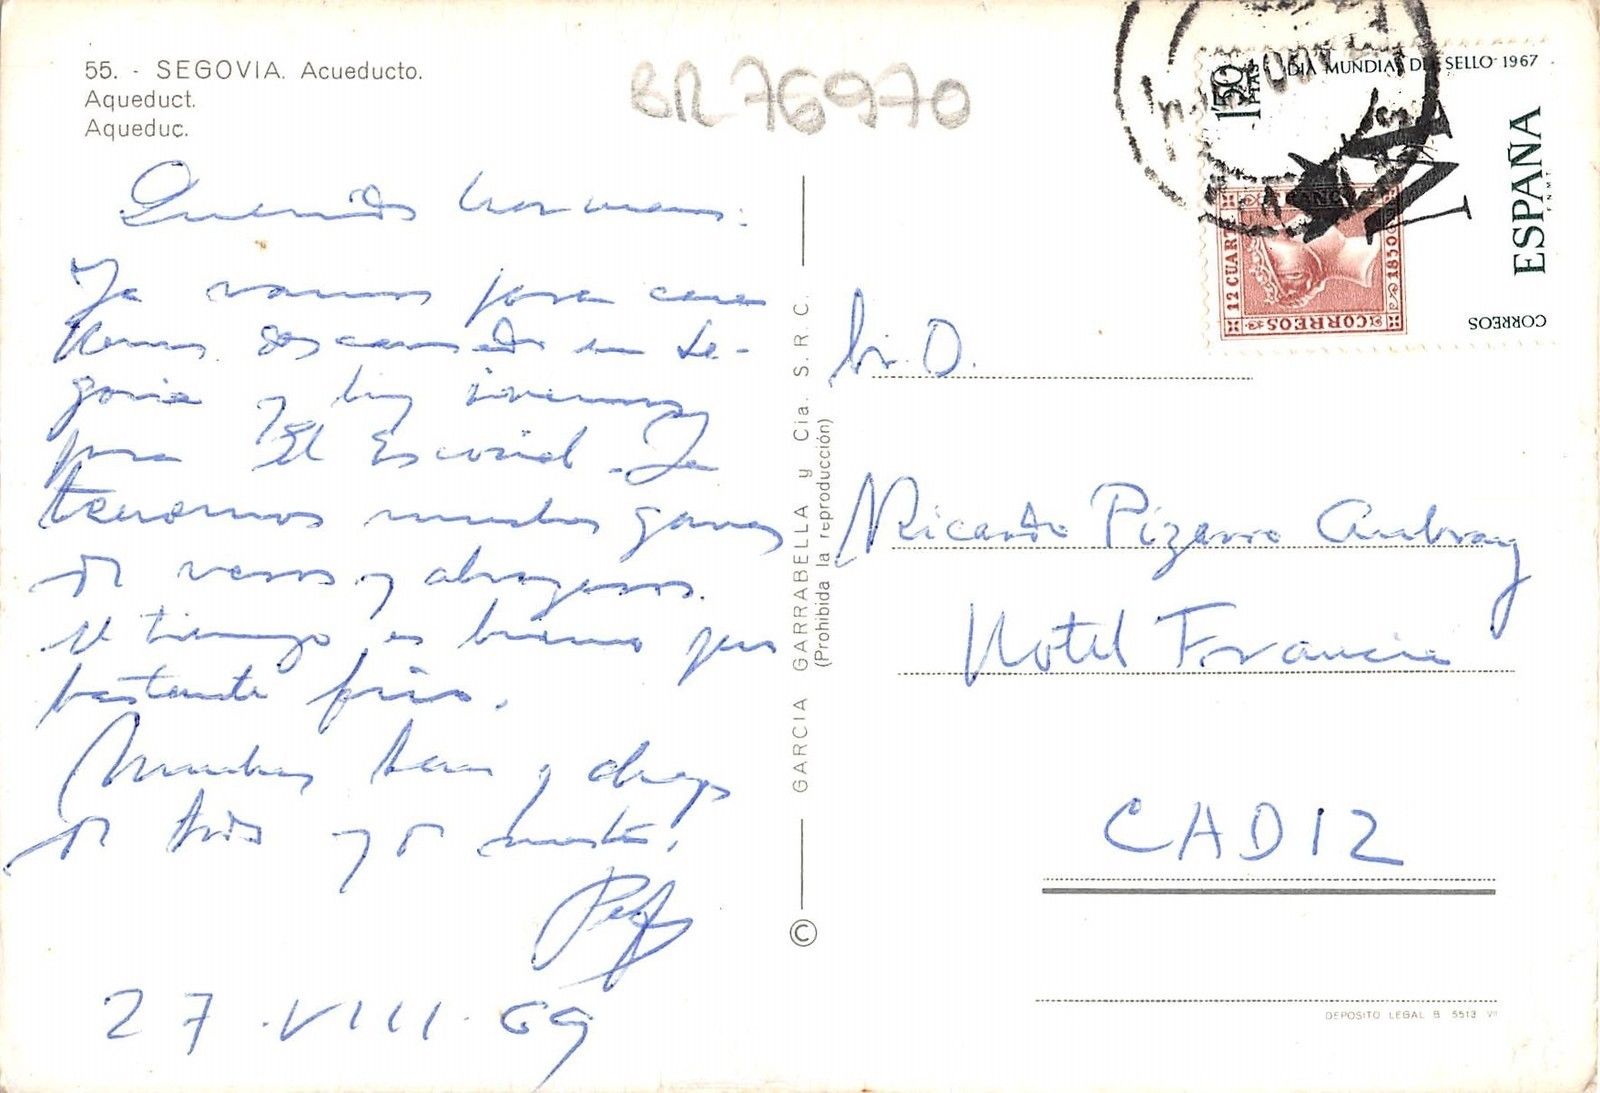 55. - SEGOVIA. Acueducto.
Aqueduct.
Aqueduc.
BR76970
Queridos hermanos:
Ya vamos para casa
Hemos descansado en Se-
govia y hoy iremos
para El Escorial. Ya
tenemos muchas ganas
de veros y abrazaros.
El tiempo es bueno pero
bastante frío.
Muchos besos y abrazos
de todos y de
27-VIII-69
GARCIA GARRABELLA y Cia. S. R. C.
(Prohibida la reproducción)
©
1'50 PTAS
DIA MUNDIAL DEL SELLO 1967
ESPAÑA
F.N.M.T.
CORREOS
12 CUARTOS
FRANCO
CORREOS
1850
Sr. D.
Ricardo Pizarro Aubray
Hotel Francia
CADIZ
DEPOSITO LEGAL B. 5513 VII